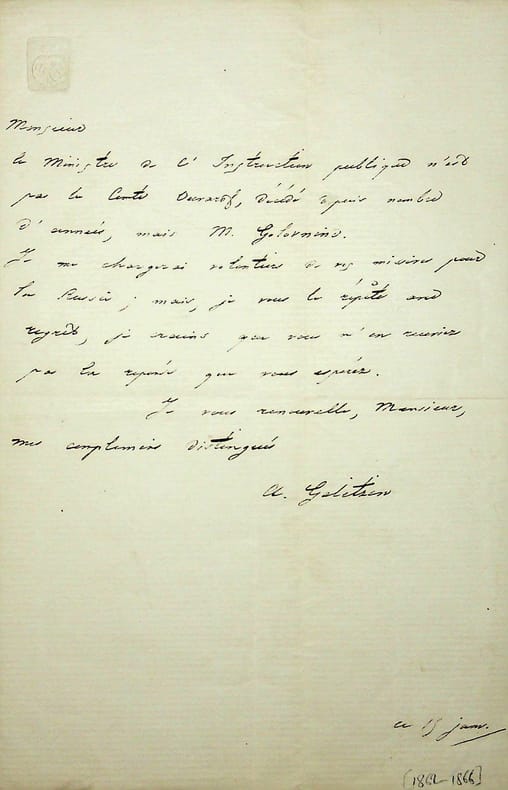 Monsieur
le Ministre de l'Instruction publique n'est
pas le Comte Ouvaroff, décédé depuis nombre
d'années, mais M. Golovnine.
Je me chargerai volontiers de vos missives pour
la Russie ; mais, je vous le répète avec
regret, je crains que vous n'en receviez
pas la réponse que vous espérez.
Je vous renouvelle, Monsieur,
mes complimens distingués
A. Galitzin
ce 15 janv.
[1862-1866]